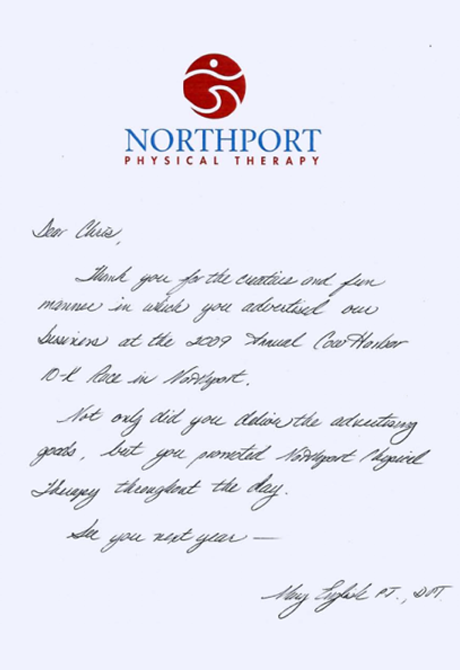 NORTHPORT
PHYSICAL THERAPY
Dear Chris,
Thank you for the creative and fun
manner in which you advertised our
business at the 2009 Annual Cow Harbor
10-K Race in Northport.
Not only did you deliver the advertising
goods, but you promoted Northport Physical
Therapy throughout the day.
See you next year —
Mary PT., DPT.